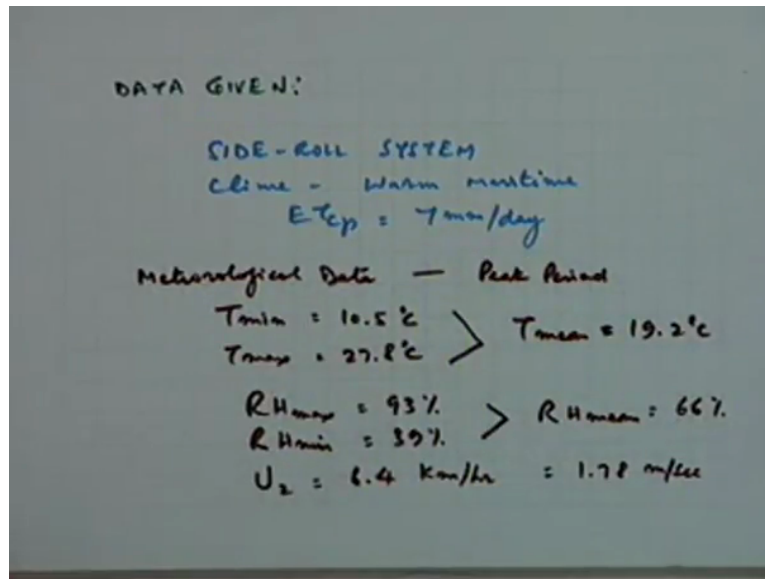 DATA GIVEN:
SIDE-ROLL SYSTEM
Clime - Warm maritime
ETcp = 7 mm/day
Meteorological Data — Peak Period
Tmin = 10.5°c
Tmax = 27.8°c > Tmean = 19.2°c
RHmax = 93%
RHmin = 39% > RHmean = 66%
U2 = 6.4 Km/hr = 1.78 m/sec